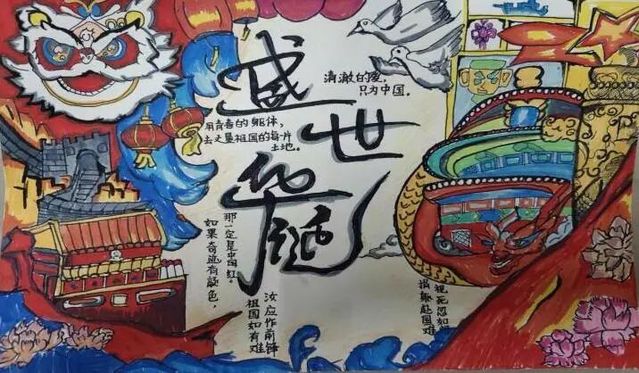 盛
世
华
清澈的爱，
只为中国。
用青春的躯体，
去丈量祖国的每片
土地。
如果奇迹有颜色，
那一定是中国红。
祖国如有难
汝应作前锋
捐躯赴国难
视死忽如